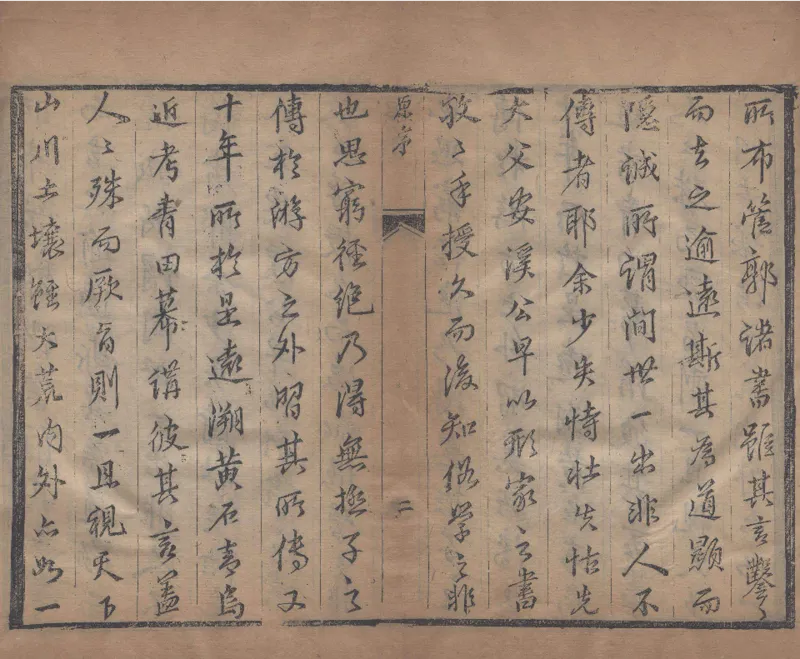 所布管郭諸書雖其言鑿〻
而去之逾遠斯其為道顯而
隱誠所謂間世一出非人不
傳者耶余少失恃壯失怙先
大父安溪公早以形家之書
孜〻手授久而後知俗學之非
原序
二
也思窮徑絕乃得無極子之
傳於游方之外習其所傳又
十年所於是遠溯黃石青烏
近考青田幕講彼其言蓋
人〻殊而厥旨則一且視天下
山川土壤雖大荒內外亦如一